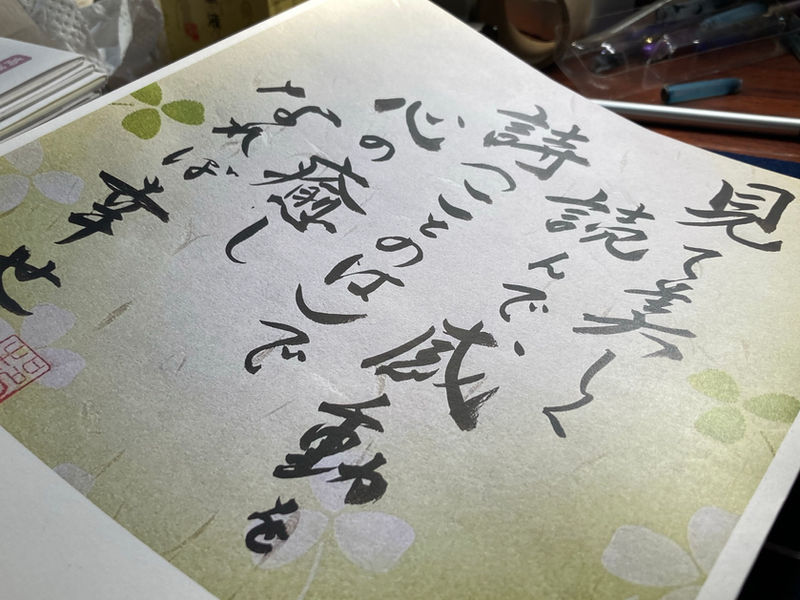 見て美しく
読んで感動を
詩つことのはしで
心の癒し
なれば幸せ